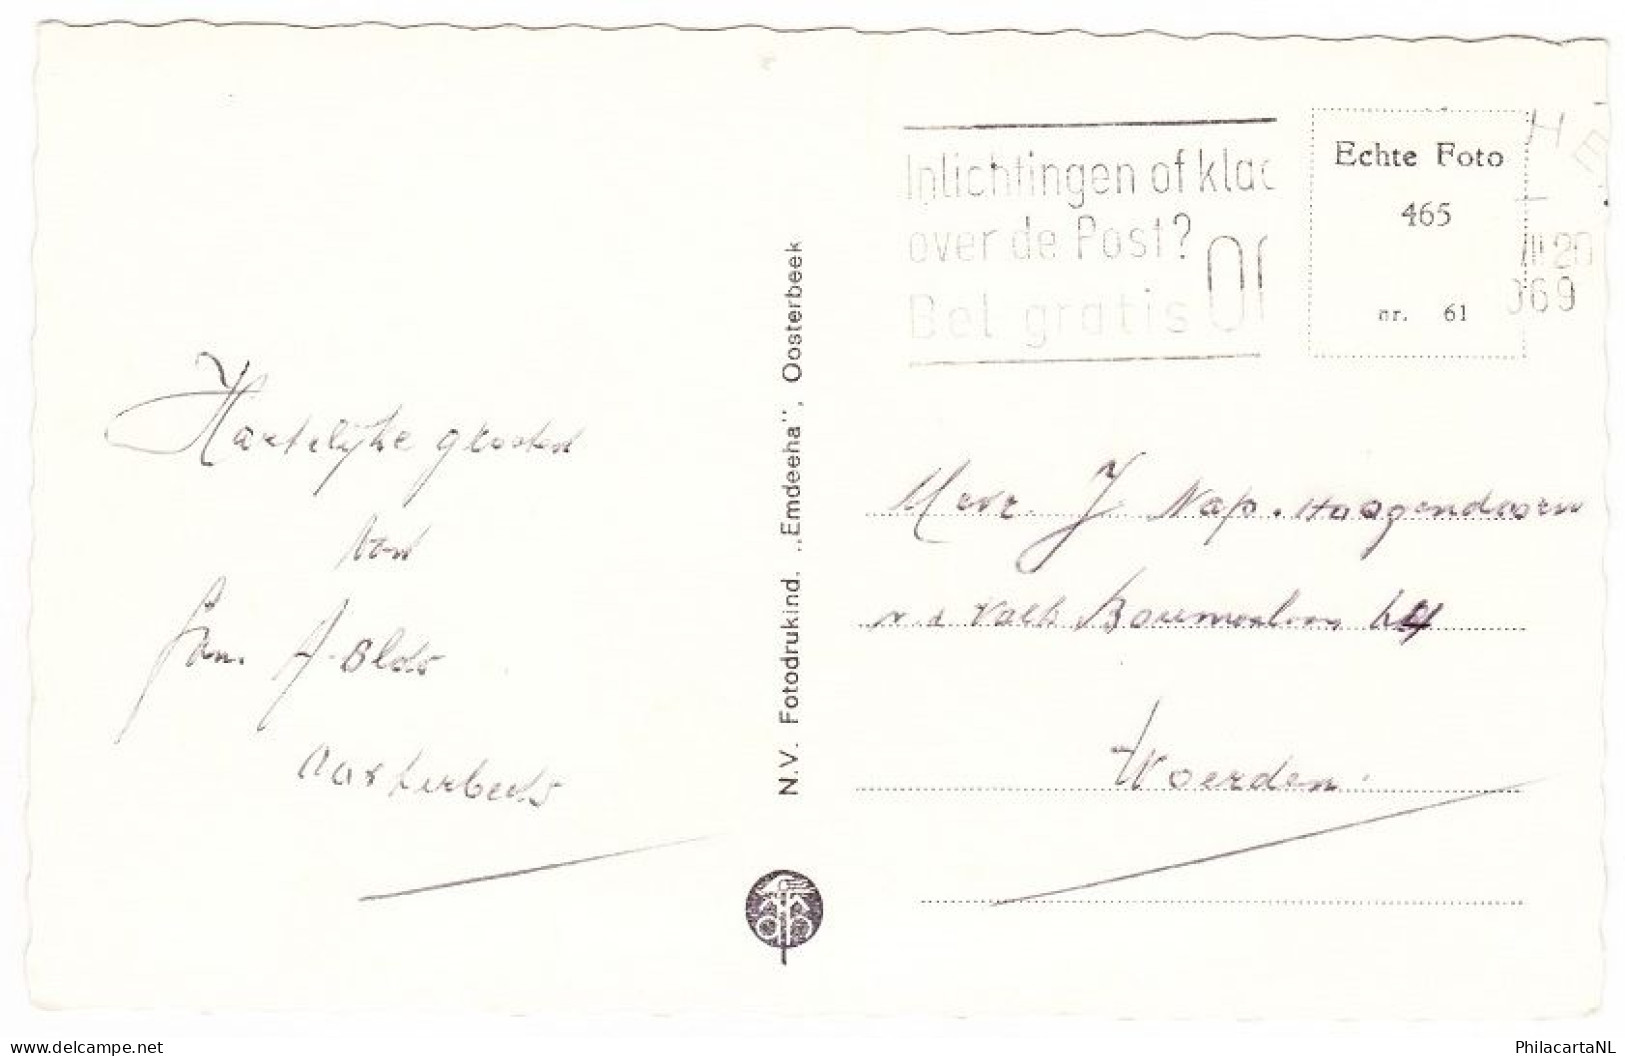 Hartelijke groeten
van
Fam. A. Blds
Oosterbeek
N.V. Fotodrukind. „Emdeeha", Oosterbeek
Inlichtingen of klac
over de Post?
Bel gratis 00
Echte Foto
465
nr. 61
HE
III 20
969
Mevr. J Nap. Hoogendoorn
v.d Valk Boumanlaan
Woerden.
www.delcampe.net
PhilacartaNL